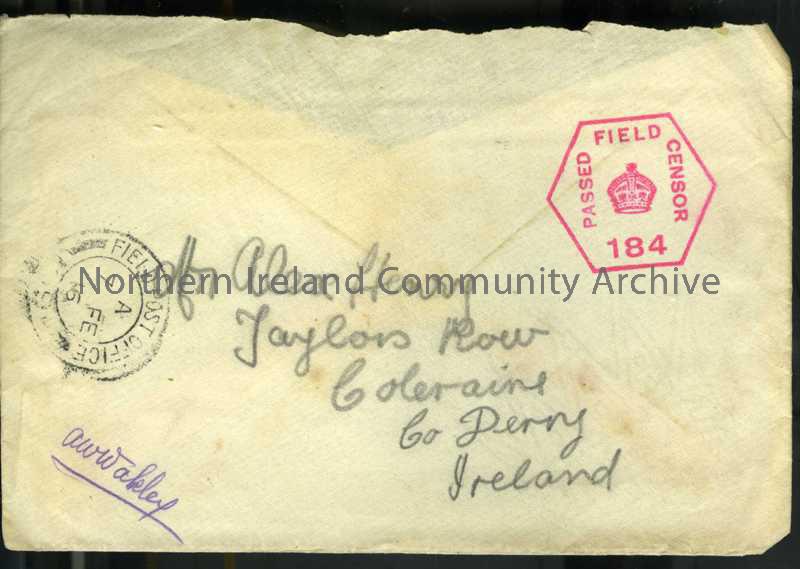 PASSED FIELD CENSOR
184
FIELD POST OFFICE
A
FE
Northern Ireland Community Archive
Alex Henry
Taylors Row
Coleraine
Co Derry
Ireland
AWWakley